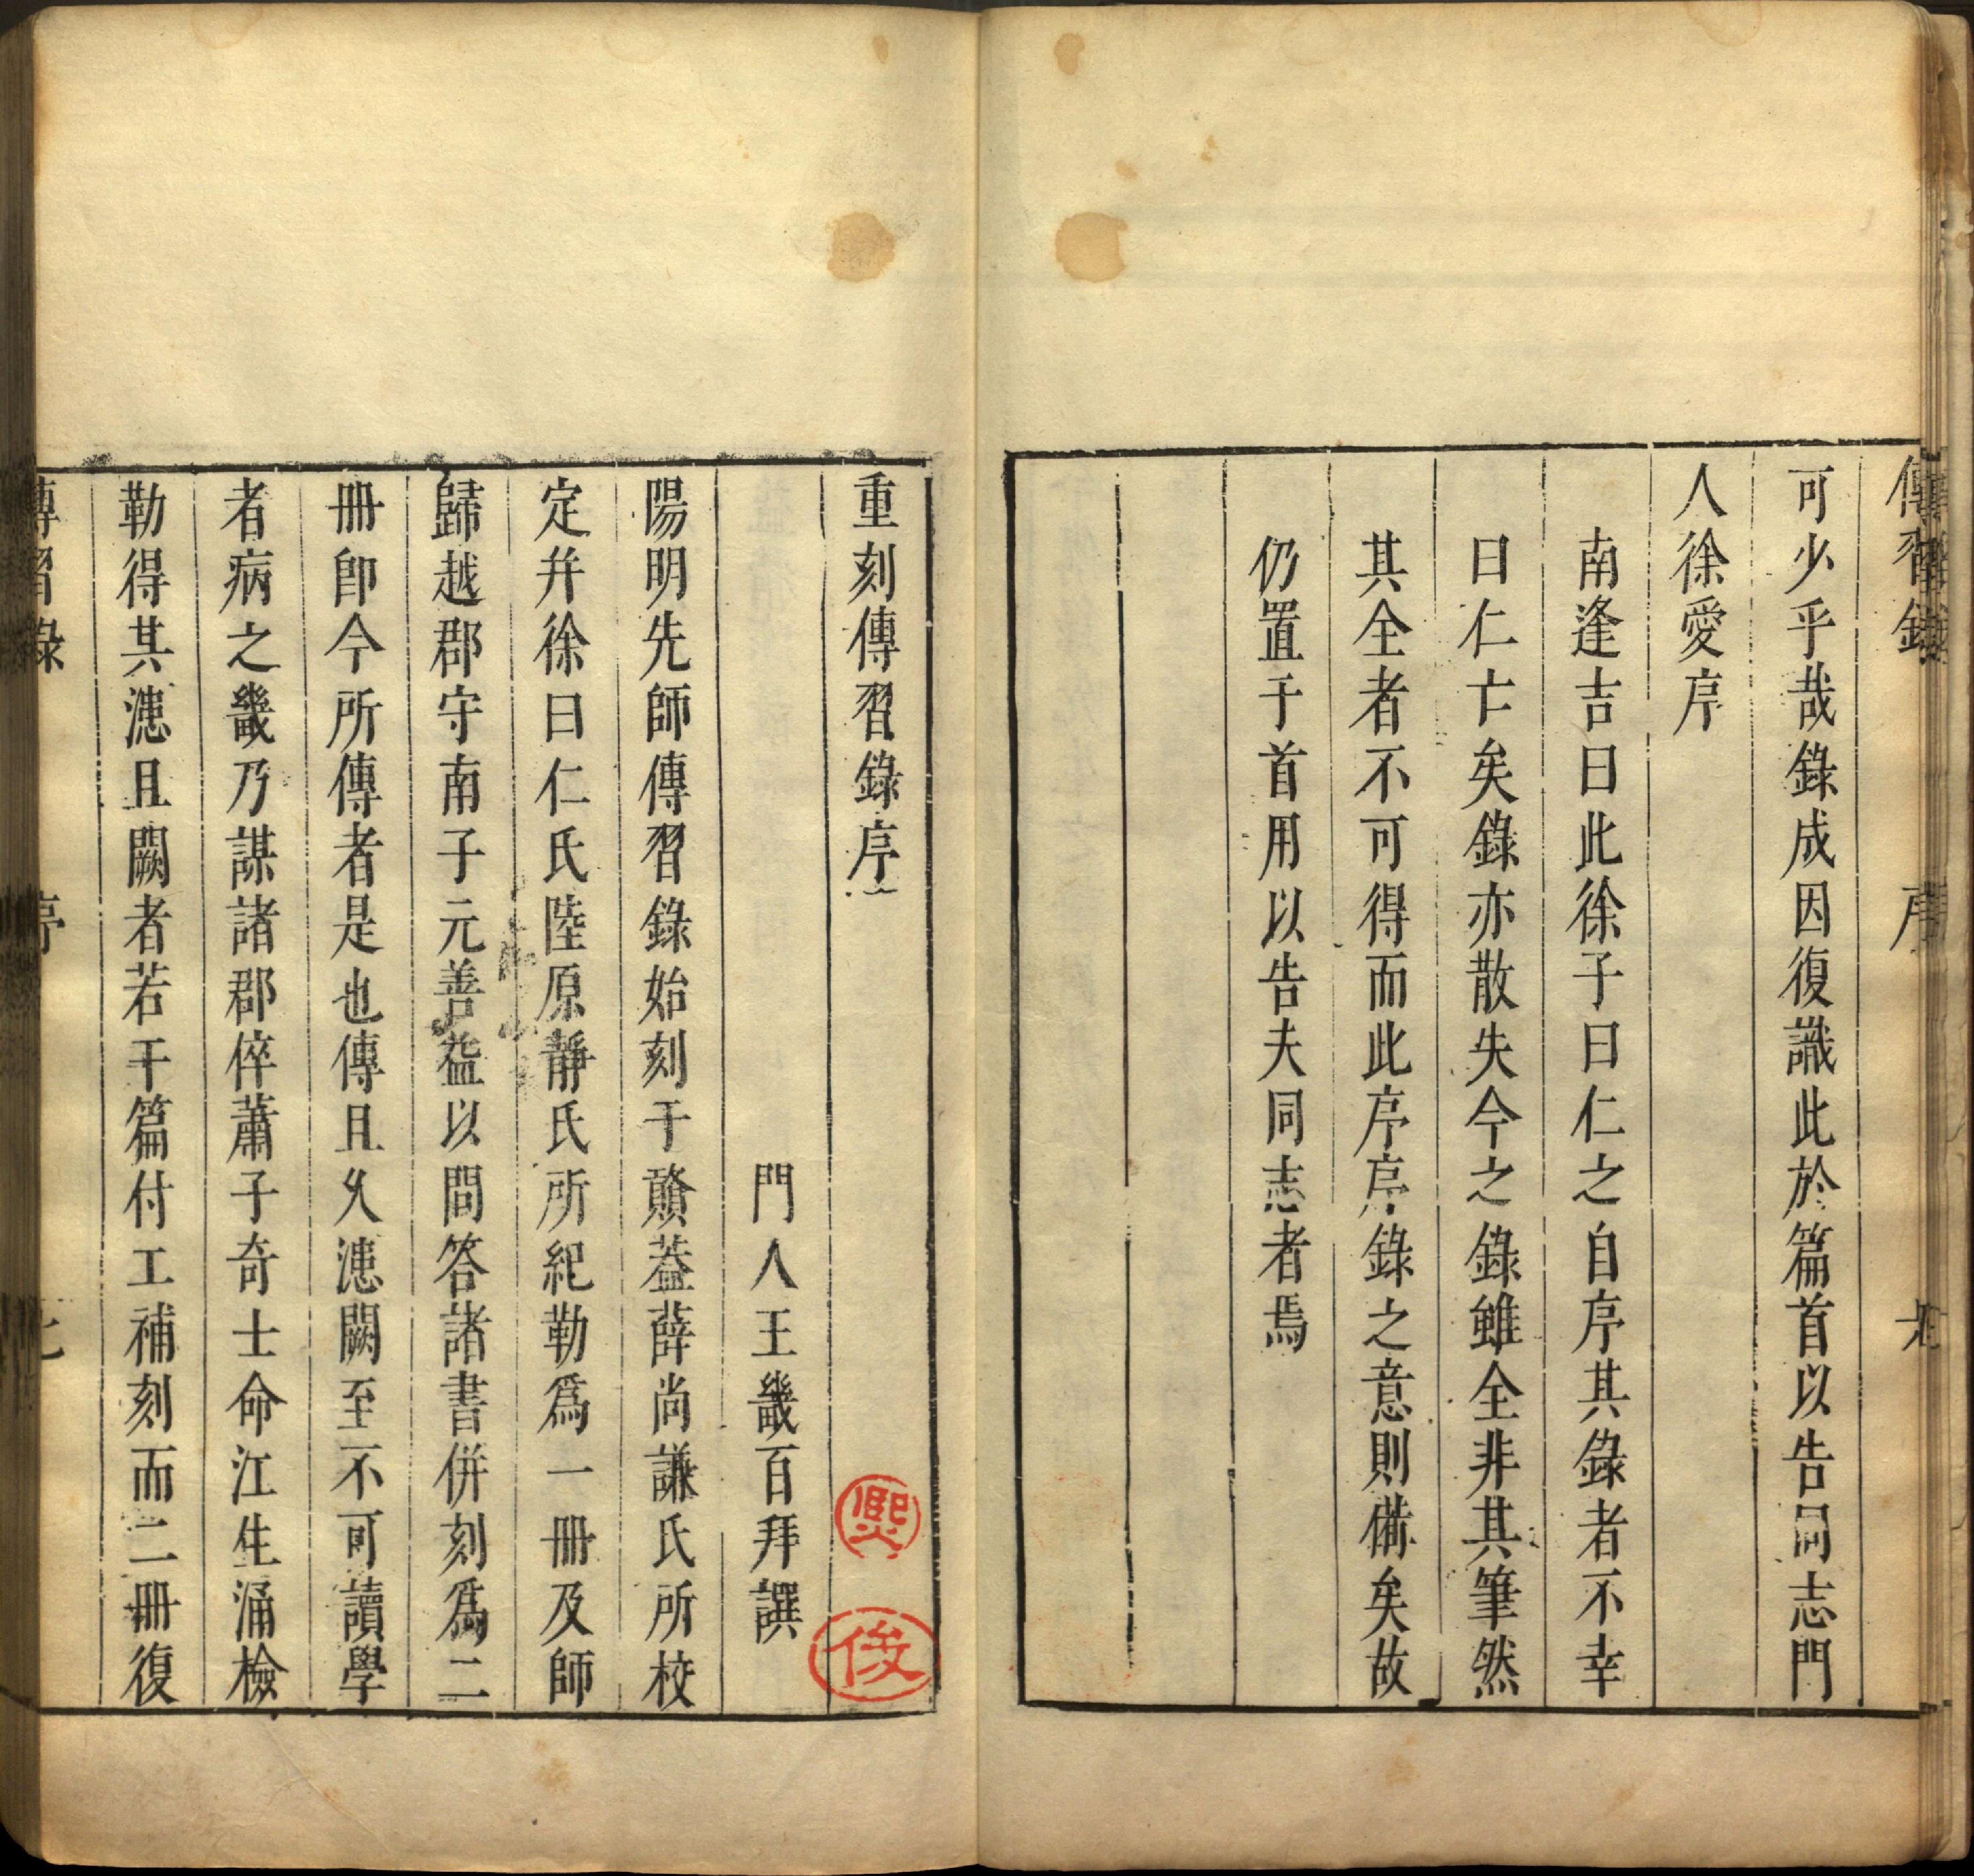 傳習錄 序
可少乎哉錄成因復識此於篇首以告同志門
人徐愛序
南逢吉曰此徐子曰仁之自序其錄者不幸
曰仁亡矣錄亦散失今之錄雖全非其筆然
其全者不可得而此序序錄之意則備矣故
仍置于首用以告夫同志者焉
重刻傳習錄序
門人王畿百拜譔
陽明先師傳習錄始刻于贛葢薛尚謙氏所校
定幷徐曰仁氏陸原靜氏所紀勒爲一冊及師
歸越郡守南子元善益以問答諸書併刻爲二
冊卽今所傳者是也傳且久漶闕至不可讀學
者病之畿乃謀諸郡倅蕭子奇士命江生涌檢
勒得其漶且闕者若干篇付工補刻而二冊復
傳習錄 序 七
熙
俊